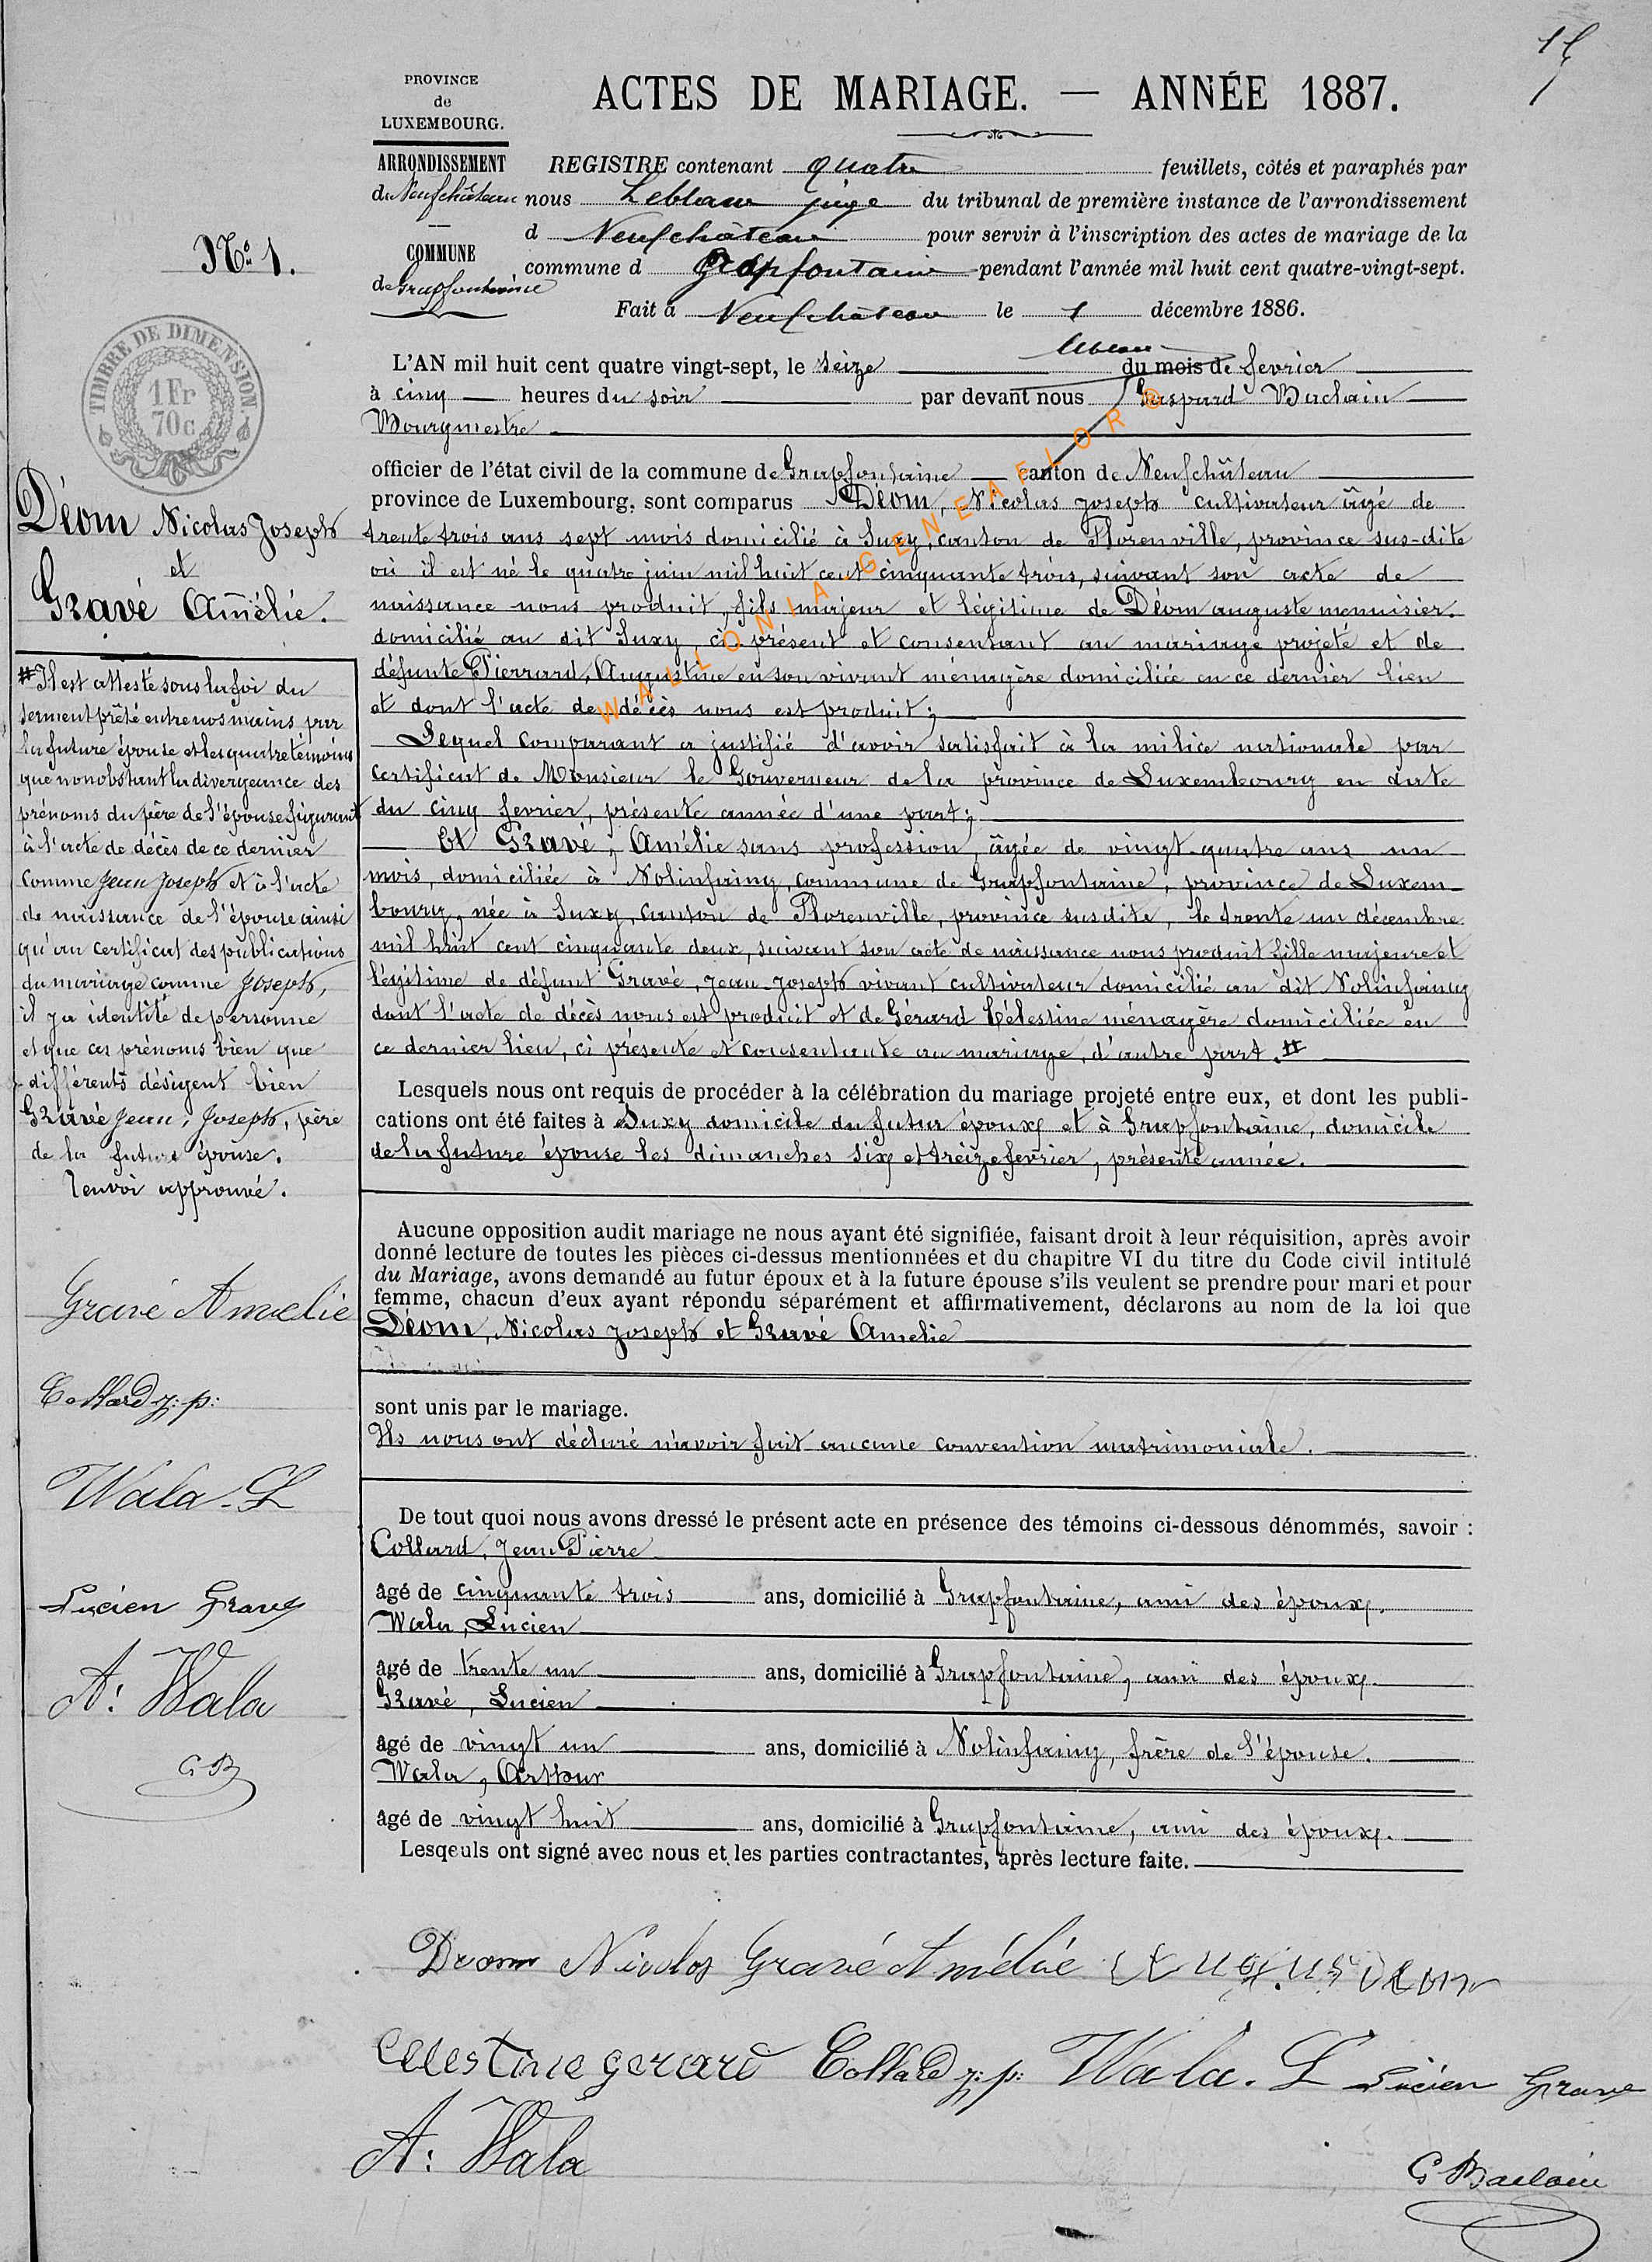 15
PROVINCE
de
LUXEMBOURG.
ARRONDISSEMENT
de Neufchâteau
COMMUNE
de Grapfontaine
ACTES DE MARIAGE. — ANNÉE 1887.
REGISTRE contenant quatre feuillets, côtés et paraphés par
nous Leblanc juge du tribunal de première instance de l'arrondissement
d Neufchâteau pour servir à l'inscription des actes de mariage de la
commune d Grapfontaine pendant l'année mil huit cent quatre-vingt-sept.
Fait à Neufchâteau le 1 décembre 1886.
No 1.
TIMBRE DE DIMENSION
1 Fr
70 c.
Déom Nicolas Joseph
et
Gravé Amélie.
L'AN mil huit cent quatre vingt-sept, le seize du mois de fevrier
à cinq heures du soir par devant nous Gaspard Baclain
Bourgmestre
officier de l'état civil de la commune de Grapfontaine canton de Neufchâteau
province de Luxembourg, sont comparus Déom, Nicolas Joseph cultivateur âgé de
trente trois ans sept mois domicilié à Suxy, canton de Florenville, province sus-dite
où il est né le quatre juin mil huit cent cinquante trois, suivant son acte de
naissance nous produit, fils majeur et légitime de Déom auguste menuisier.
domicilié au dit Suxy, ci présent et consentant au mariage projeté et de
défunte Pierrard, Augustine en son vivant ménagère domiciliée en ce dernier lieu
et dont l'acte de décès nous est produit;
Lequel comparant a justifié d'avoir satisfait à la milice nationale par
certificat de Monsieur le Gouverneur de la province de Luxembourg en date
du cinq fevrier, présente année d'une part;
Et Gravé, Amélie sans profession, âgée de vingt-quatre ans un
mois, domiciliée à Nolinfaing, commune de Grapfontaine, province de Luxem-
bourg, née à Suxy, canton de Florenville, province susdite, le trente un décembre
mil huit cent cinquante deux, suivant son acte de naissance nous produit fille majeure et
légitime de défunt Gravé, Jean-Joseph vivant cultivateur domicilié au dit Nolinfaing
dont l'acte de décès nous est produit et de Gérard Célestine ménagère domiciliée en
ce dernier lieu, ci présente et consentante au mariage, d'autre part. #
Lesquels nous ont requis de procéder à la célébration du mariage projeté entre eux, et dont les publi-
cations ont été faites à Suxy domicile du futur époux et à Grapfontaine, domicile
de la future épouse les dimanches six et treize fevrier, présente année.
Aucune opposition audit mariage ne nous ayant été signifiée, faisant droit à leur réquisition, après avoir
donné lecture de toutes les pièces ci-dessus mentionnées et du chapitre VI du titre du Code civil intitulé
du Mariage, avons demandé au futur époux et à la future épouse s'ils veulent se prendre pour mari et pour
femme, chacun d'eux ayant répondu séparément et affirmativement, déclarons au nom de la loi que
Déom, Nicolas Joseph et Gravé Amelie
sont unis par le mariage.
Ils nous ont déclaré n'avoir fait aucune convention matrimoniale.
De tout quoi nous avons dressé le présent acte en présence des témoins ci-dessous dénommés, savoir :
Collard, Jean Pierre
âgé de cinquante trois ans, domicilié à Grapfontaine, ami des époux.
Wala, Lucien
âgé de trente un ans, domicilié à Grapfontaine, ami des époux.
Gravé, Lucien
âgé de vingt un ans, domicilié à Nolinfaing, frère de l'épouse.
Wala, Arthur
âgé de vingt huit ans, domicilié à Grapfontaine, ami des époux.
Lesqeuls ont signé avec nous et les parties contractantes, après lecture faite.
# Il est attesté sous la foi du
serment prêté entre nos mains par
la future épouse et les quatre témoins
que nonobstant la divergeance des
prénoms du père de l'épouse figurant
à l'acte de décès de ce dernier
comme Jean Joseph et à l'acte
de naissance de l'épouse ainsi
qu'au certificat des publications
du mariage comme Joseph,
il y a identité de personne
et que ces prénoms bien que
différents désigent bien
Gravé Jean, Joseph, père
de la future épouse.
Renvoi approuvé.
Gravé Amelie
Collard j: p:
Wala. L
Lucien Gravé
A: Wala
G B
Deom Nicolas Gravé Amélie
Celestine gerard Collard j: p: Wala. L Lucien Grave
A: Wala
G Baclain
WALLONIA-GENEAFLOR ©